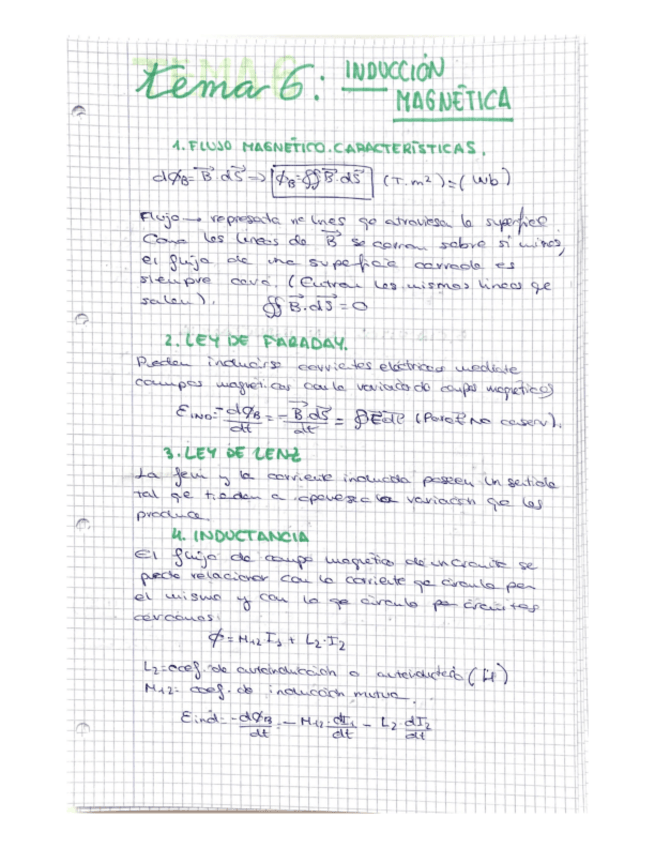 tema 6: INDUCCIÓN
MAGNÉTICA
1. FLUJO MAGNÉTICO. CARACTERÍSTICAS.
dϕB = B⃗ dS⃗ → ϕB = ∯ B⃗ dS⃗ (T.m²) = (Wb)
Flujo → representa nº lines qe atraviesa la superficie.
Como las lineas de B⃗ se cierran sobre si mimas,
el flujo de una superficie cerrada es
siempre cero. (Entran las mismas lineas qe
salen). ∯ B⃗. dS⃗ = 0
2. LEY DE FARADAY.
Pueden inducirse corrientes eléctricas mediate
campos magnéticos con la variación de campo magnético)
EIND = -dϕB/dt = -B⃗ dS⃗/dt = ∮ E⃗ dl⃗ (Para E⃗ no conserv).
3. LEY DE LENZ
La fem y la corriente inducida poseen un sentido
tal qe tienden a oponerse a la variación qe las
produce.
4. INDUCTANCIA
El flujo de campo magnético de un circuito se
puede relacionar con la corriente qe circula por
el mismo y con la qe circula por circuitos
cercanos:
ϕ = M12 I1 + L2·I2
L2 = coef. de autoinducción o autoinductancia (H)
M12 = coef. de inducción mutua.
Eind = -dϕB/dt = -M12·dI1/dt - L2·dI2/dt